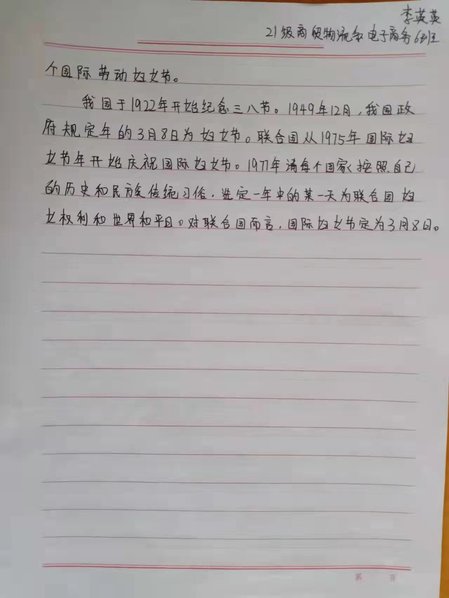 李英英
21级商贸物流系电子商务6班
个国际劳动妇女节。
我国于1922年开始纪念三八节。1949年12月,我国政
府规定年的3月8日为妇女节。联合国从1975年国际妇
女节年开始庆祝国际妇女节。1977年请每个国家按照自己
的历史和民族传统习俗,选定一年中的某一天为联合国妇
女权利和世界和平日。对联合国而言,国际妇女节定为3月8日。
第 页